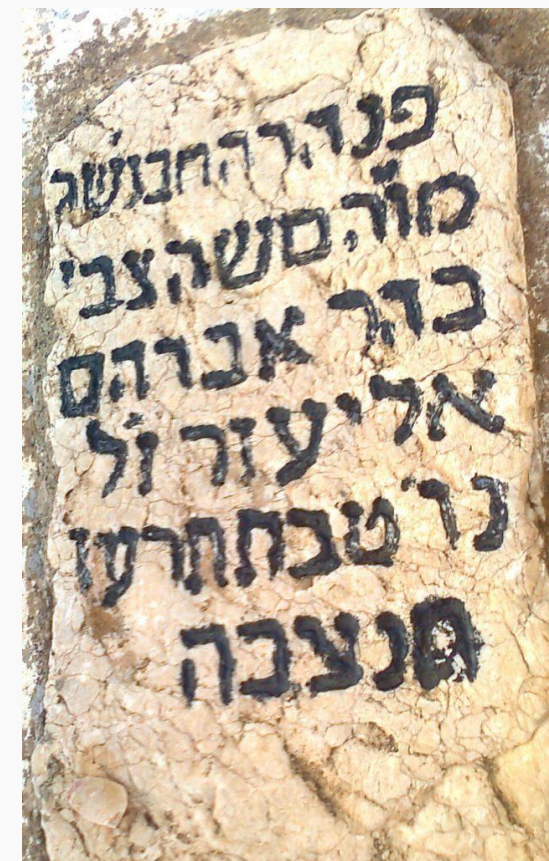 פנ הרהח
מו"ה משה צבי
בהר אברהם
אליעזר ז"ל
טבת תרעו
תנצבה